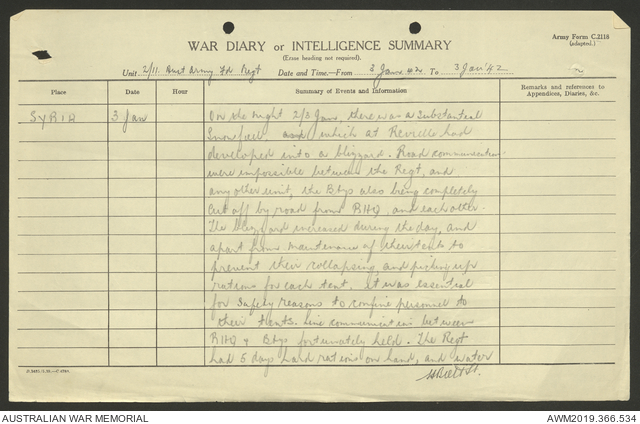 Army Form C.2118
(adapted.)
WAR DIARY or INTELLIGENCE SUMMARY
(Erase heading not required).
Unit 2/11 Aust Army Fd Regt Date and Time—From 3 Jan 42 To 3 Jan '42
Place Date Hour Summary of Events and Information Remarks and references to Appendices, Diaries, &c.
SYRIA 3 Jan On the night 2/3 Jan, there was a substantial
snow fall and which at Reveille had
developed into a blizzard. Road communication
were impossible between the Regt, and
any other unit, the Btys also being completely
cut off by road from RHQ, and each other.
The blizzard increased during the day, and
apart from maintenance of their tents to
prevent their collapsing and picking up
rations for each tent. It was essential
for safety reasons to confine personnel to
their tents. Line communications between
RHQ & Btys fortunately held. The Regt
had 5 days hard rations on hand, and water
AUSTRALIAN WAR MEMORIAL
AWM2019.366.534